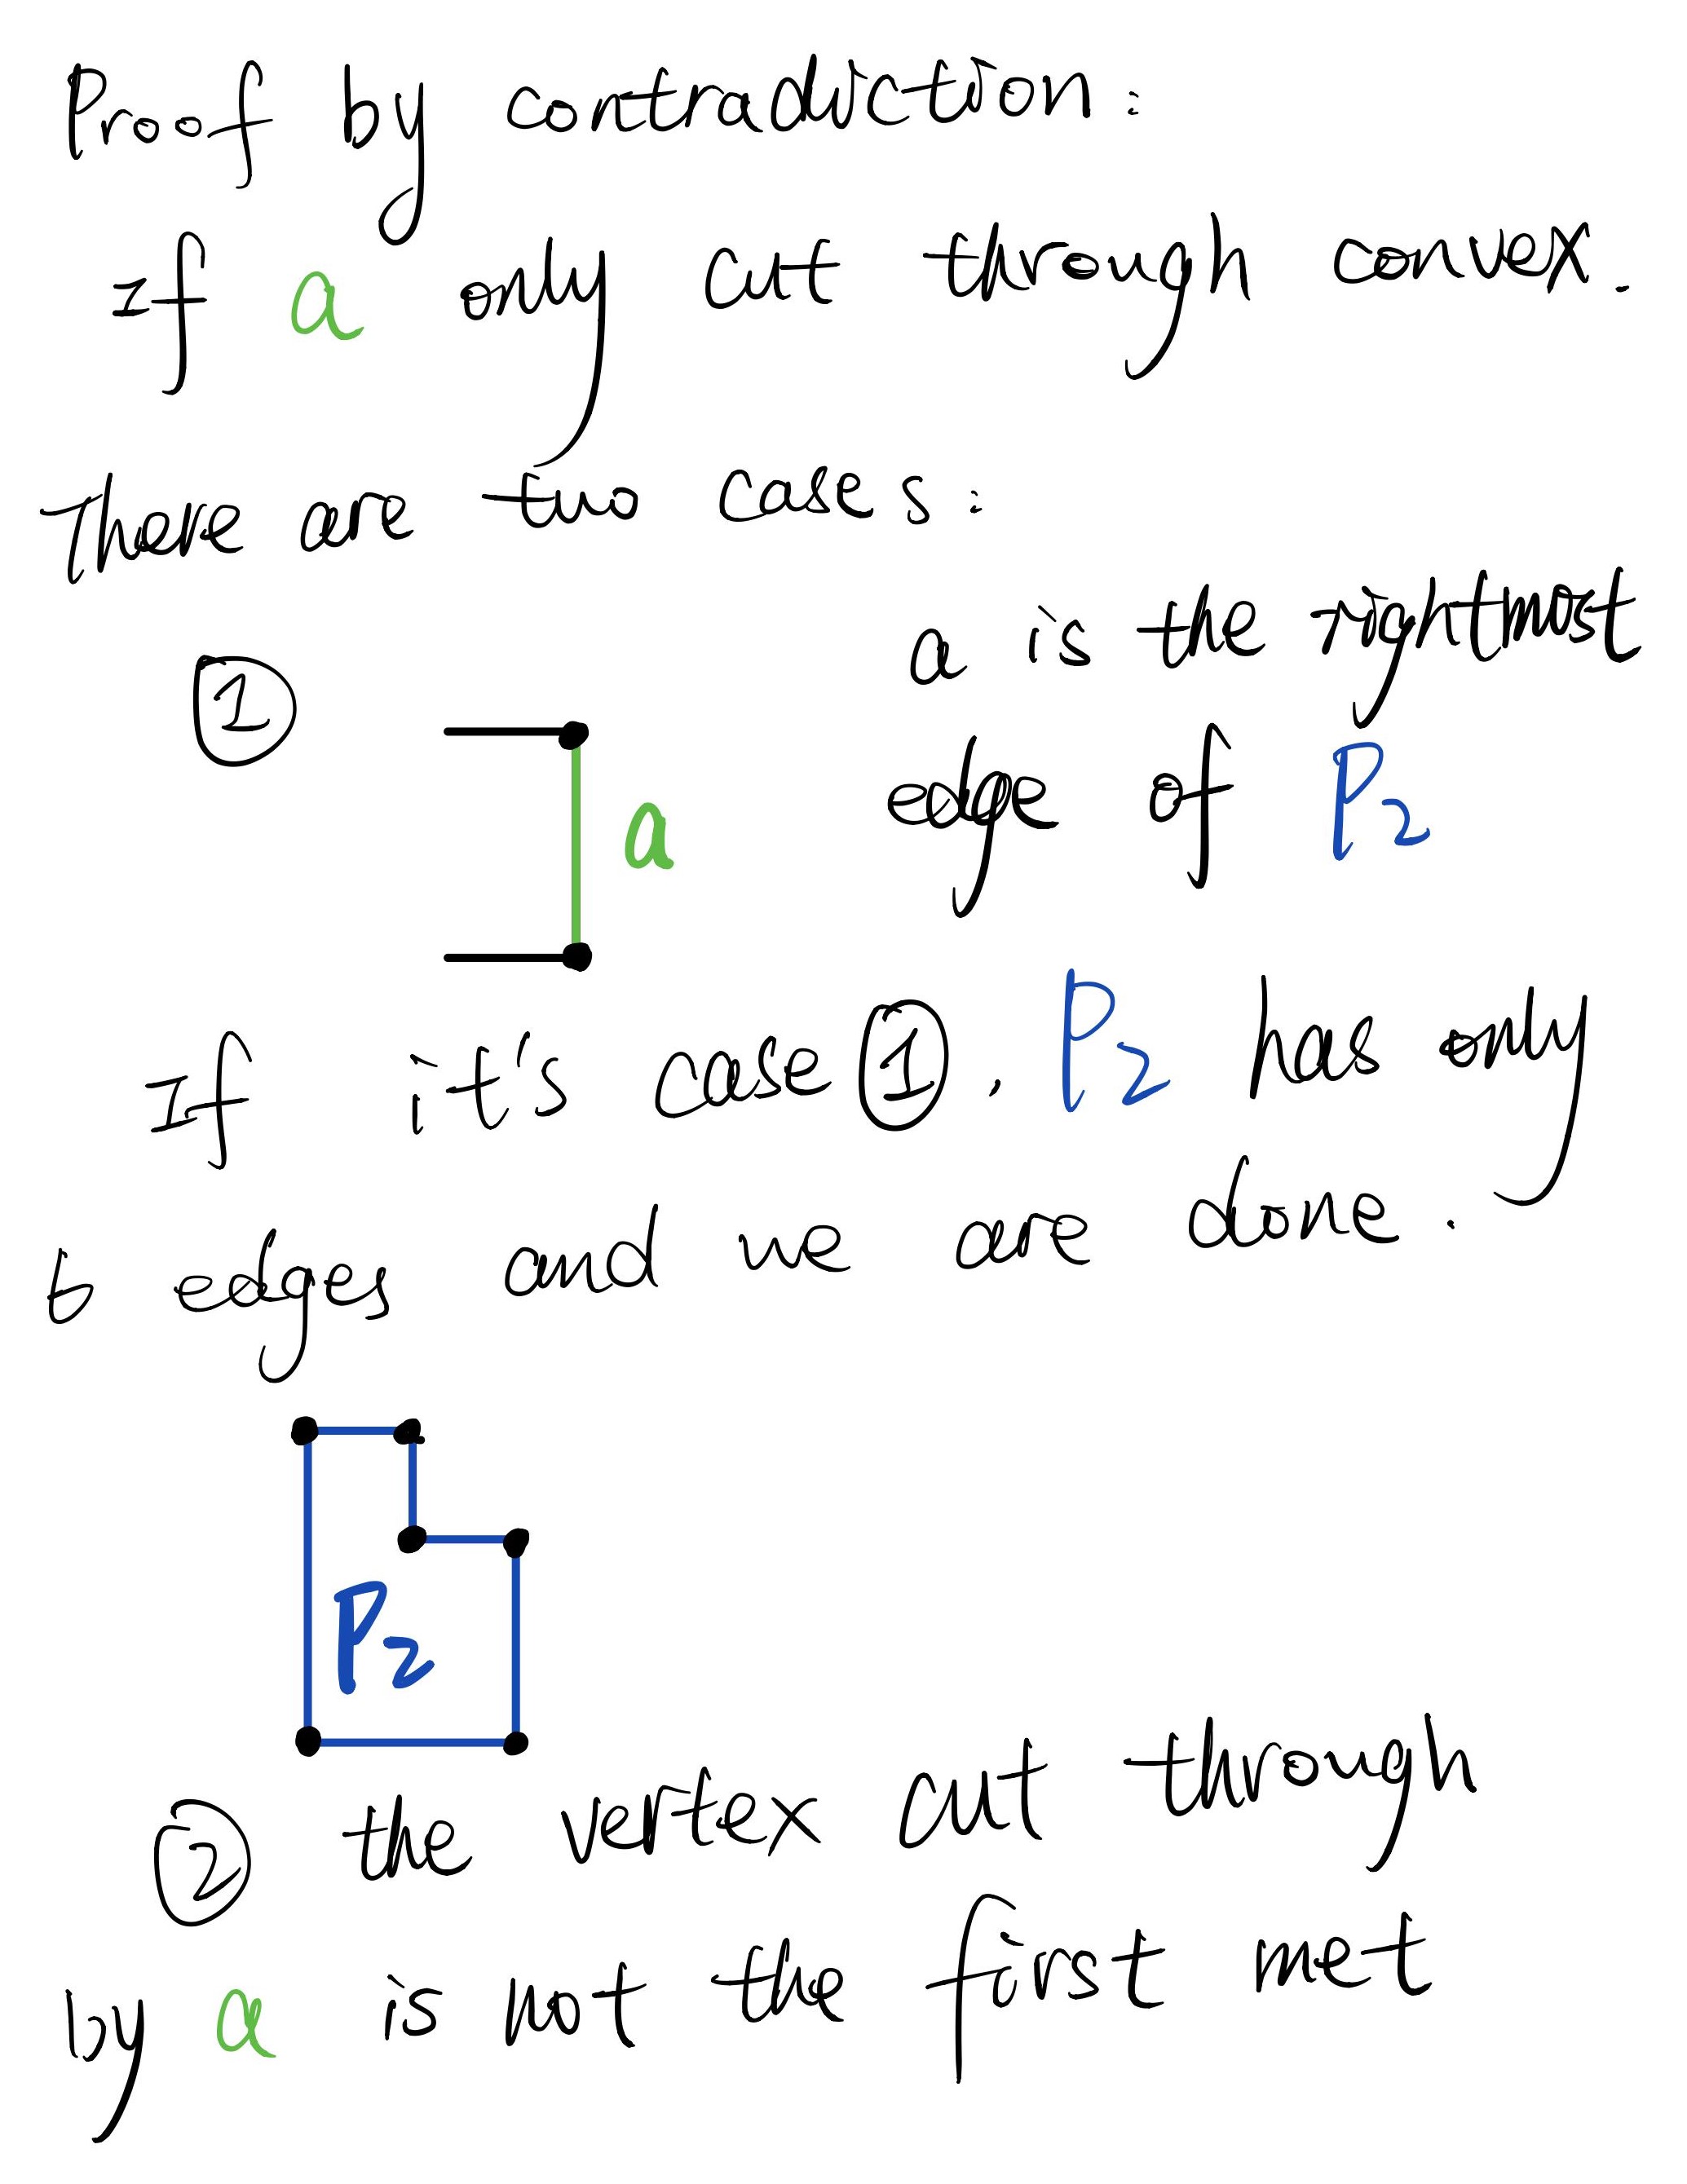 Proof by contradiction:
If a only cut through convex.
There are two cases:
a is the rightmost
①
edge of P2
a
If it's case ①. P2 has only
6 edges and we are done.
P2
② the vertex cut through
by a is not the first met